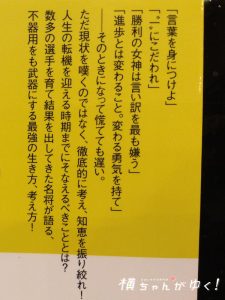 「言葉を身につけよ」
「“こ”にこだわれ」
「勝利の女神は言い訳を最も嫌う」
「進歩とは変わること。変わる勇気を持て」
――そのときになって慌てても遅い。
ただ現状を嘆くのではなく、徹底的に考え、知恵を振り絞れ！
人生の転機を迎える時期までにそなえるべきこととは？
数多の選手を育て結果を出してきた名将が語る、
不器用をも武器にする最強の生き方、考え方！
横ちゃんがゆく！